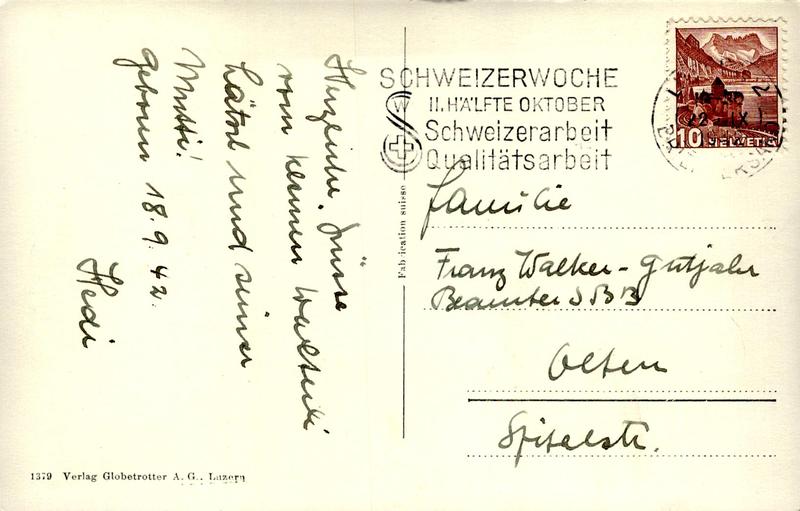 Herzliche Grüsse
vom kleinen Walterli
Lätsch und seiner
Mutti!
geboren 18.9.42.
Hedi
SCHWEIZERWOCHE
II. HÄLFTE OKTOBER
Schweizerarbeit
Qualitätsarbeit
W
22. IX
10 HELVETIA
Fabrication suisse
Familie
Franz Walker-Gutjahr
Beamter SBB
Olten
Spitalstr.
1379 Verlag Globetrotter A. G., Luzern